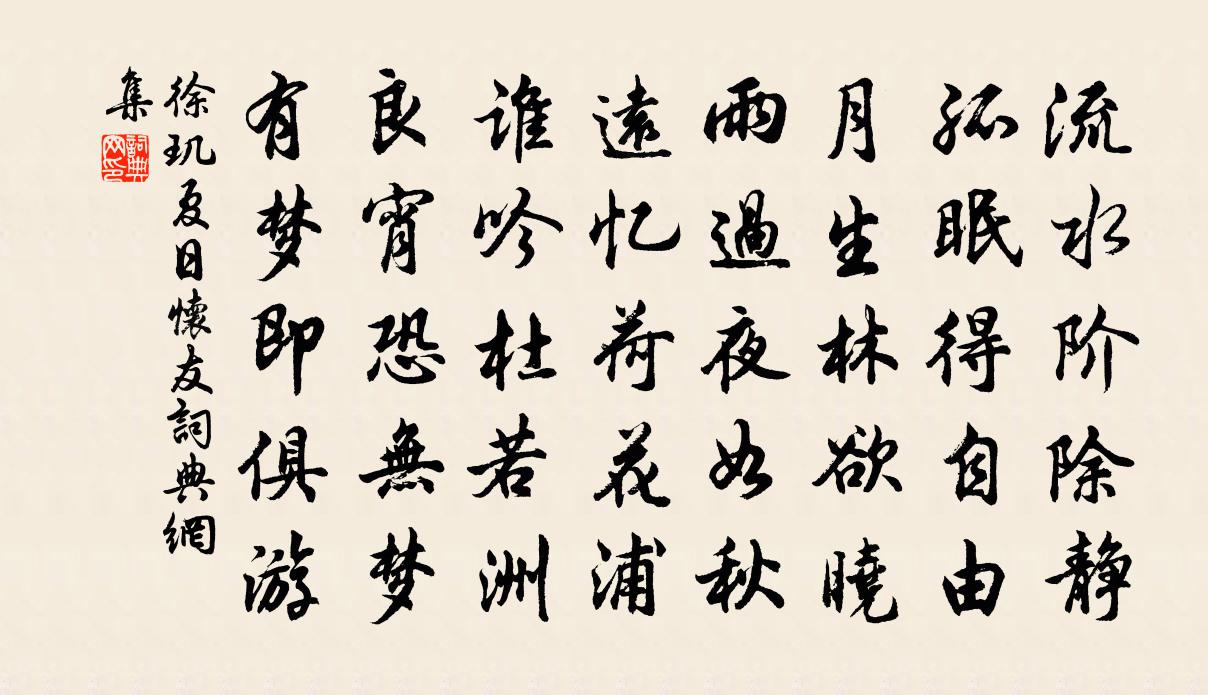 流水阶除静
孤眠得自由
月生林欲曉
雨過夜如秋
遠忆荷花浦
谁吟杜若洲
良宵恐無梦
有梦即俱游
徐玑夏日懷友詞典網
集
詞典
网印